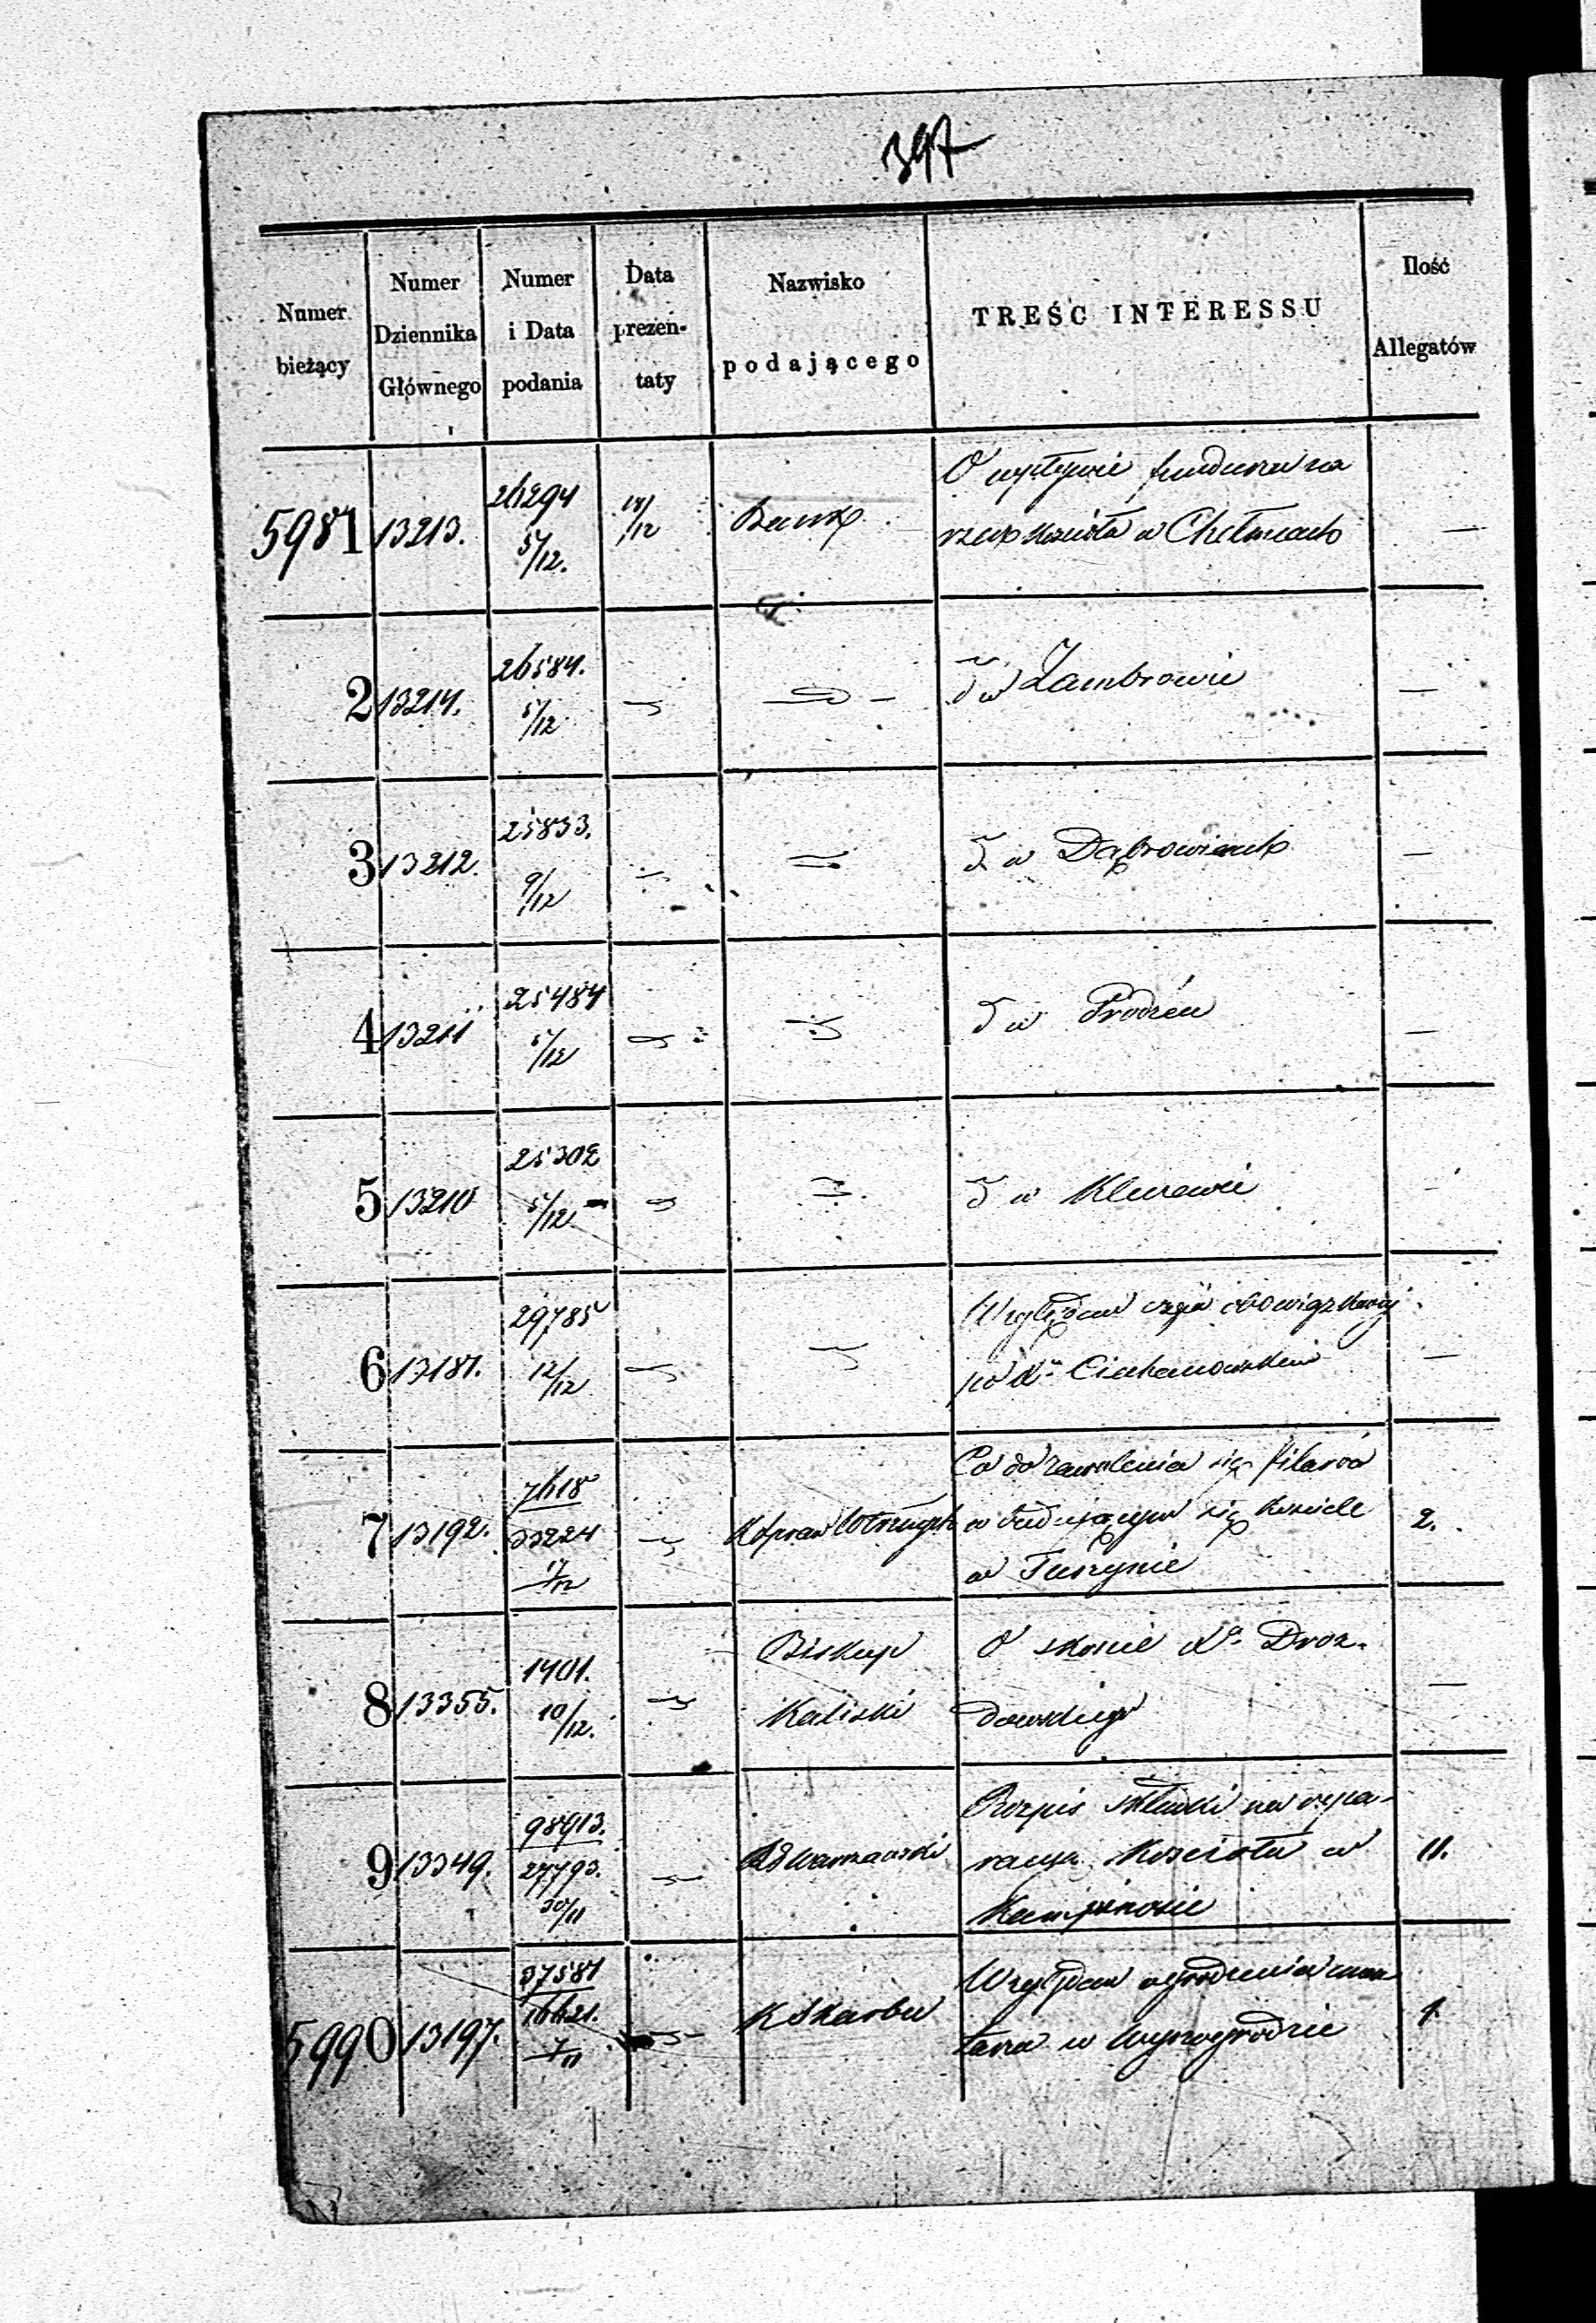 397
Numer bieżący
Numer Dziennika Głównego
Numer i Data podania
Data prezen- taty
Nazwisko podającego
TREŚC INTERESSU
Ilość Allegatów
5981 13213. 26294 5/12. 14/12 Bank O wpływie funduszu na
rzecz kościoła w Chełmcach —
2 13214. 26584. 5/12 — d° w Zambrowie —
3 13212. 25833. 9/12 d° w Dąbrowicach —
4 13211 25484 5/12 d° w —
5 13210 25302 5/12 d° w —
6 13187. 29785 12/12 Względem części obowiązkowej
po Xu Ciechanowskim —
7 13192. 7618 33224 1/12 K Spraw Wewnętrznych Co do zawalenia się filarów
w budującym się kościele 2.
w Tuszynie
8 13355. 1401. 10/12. Biskup Kaliski O skonie Xa Droz-
dowskiego —
9 13349. 98913. 27793. 30/11 Rd Warszawski Rozpis składki na repa-
racyą Kościoła w 11.
Kampinosie
5990 13197. 37581 16621. 7/11 K Skarbu Względem ogrodzenia cmen
tarza w Wyszogrodzie 1